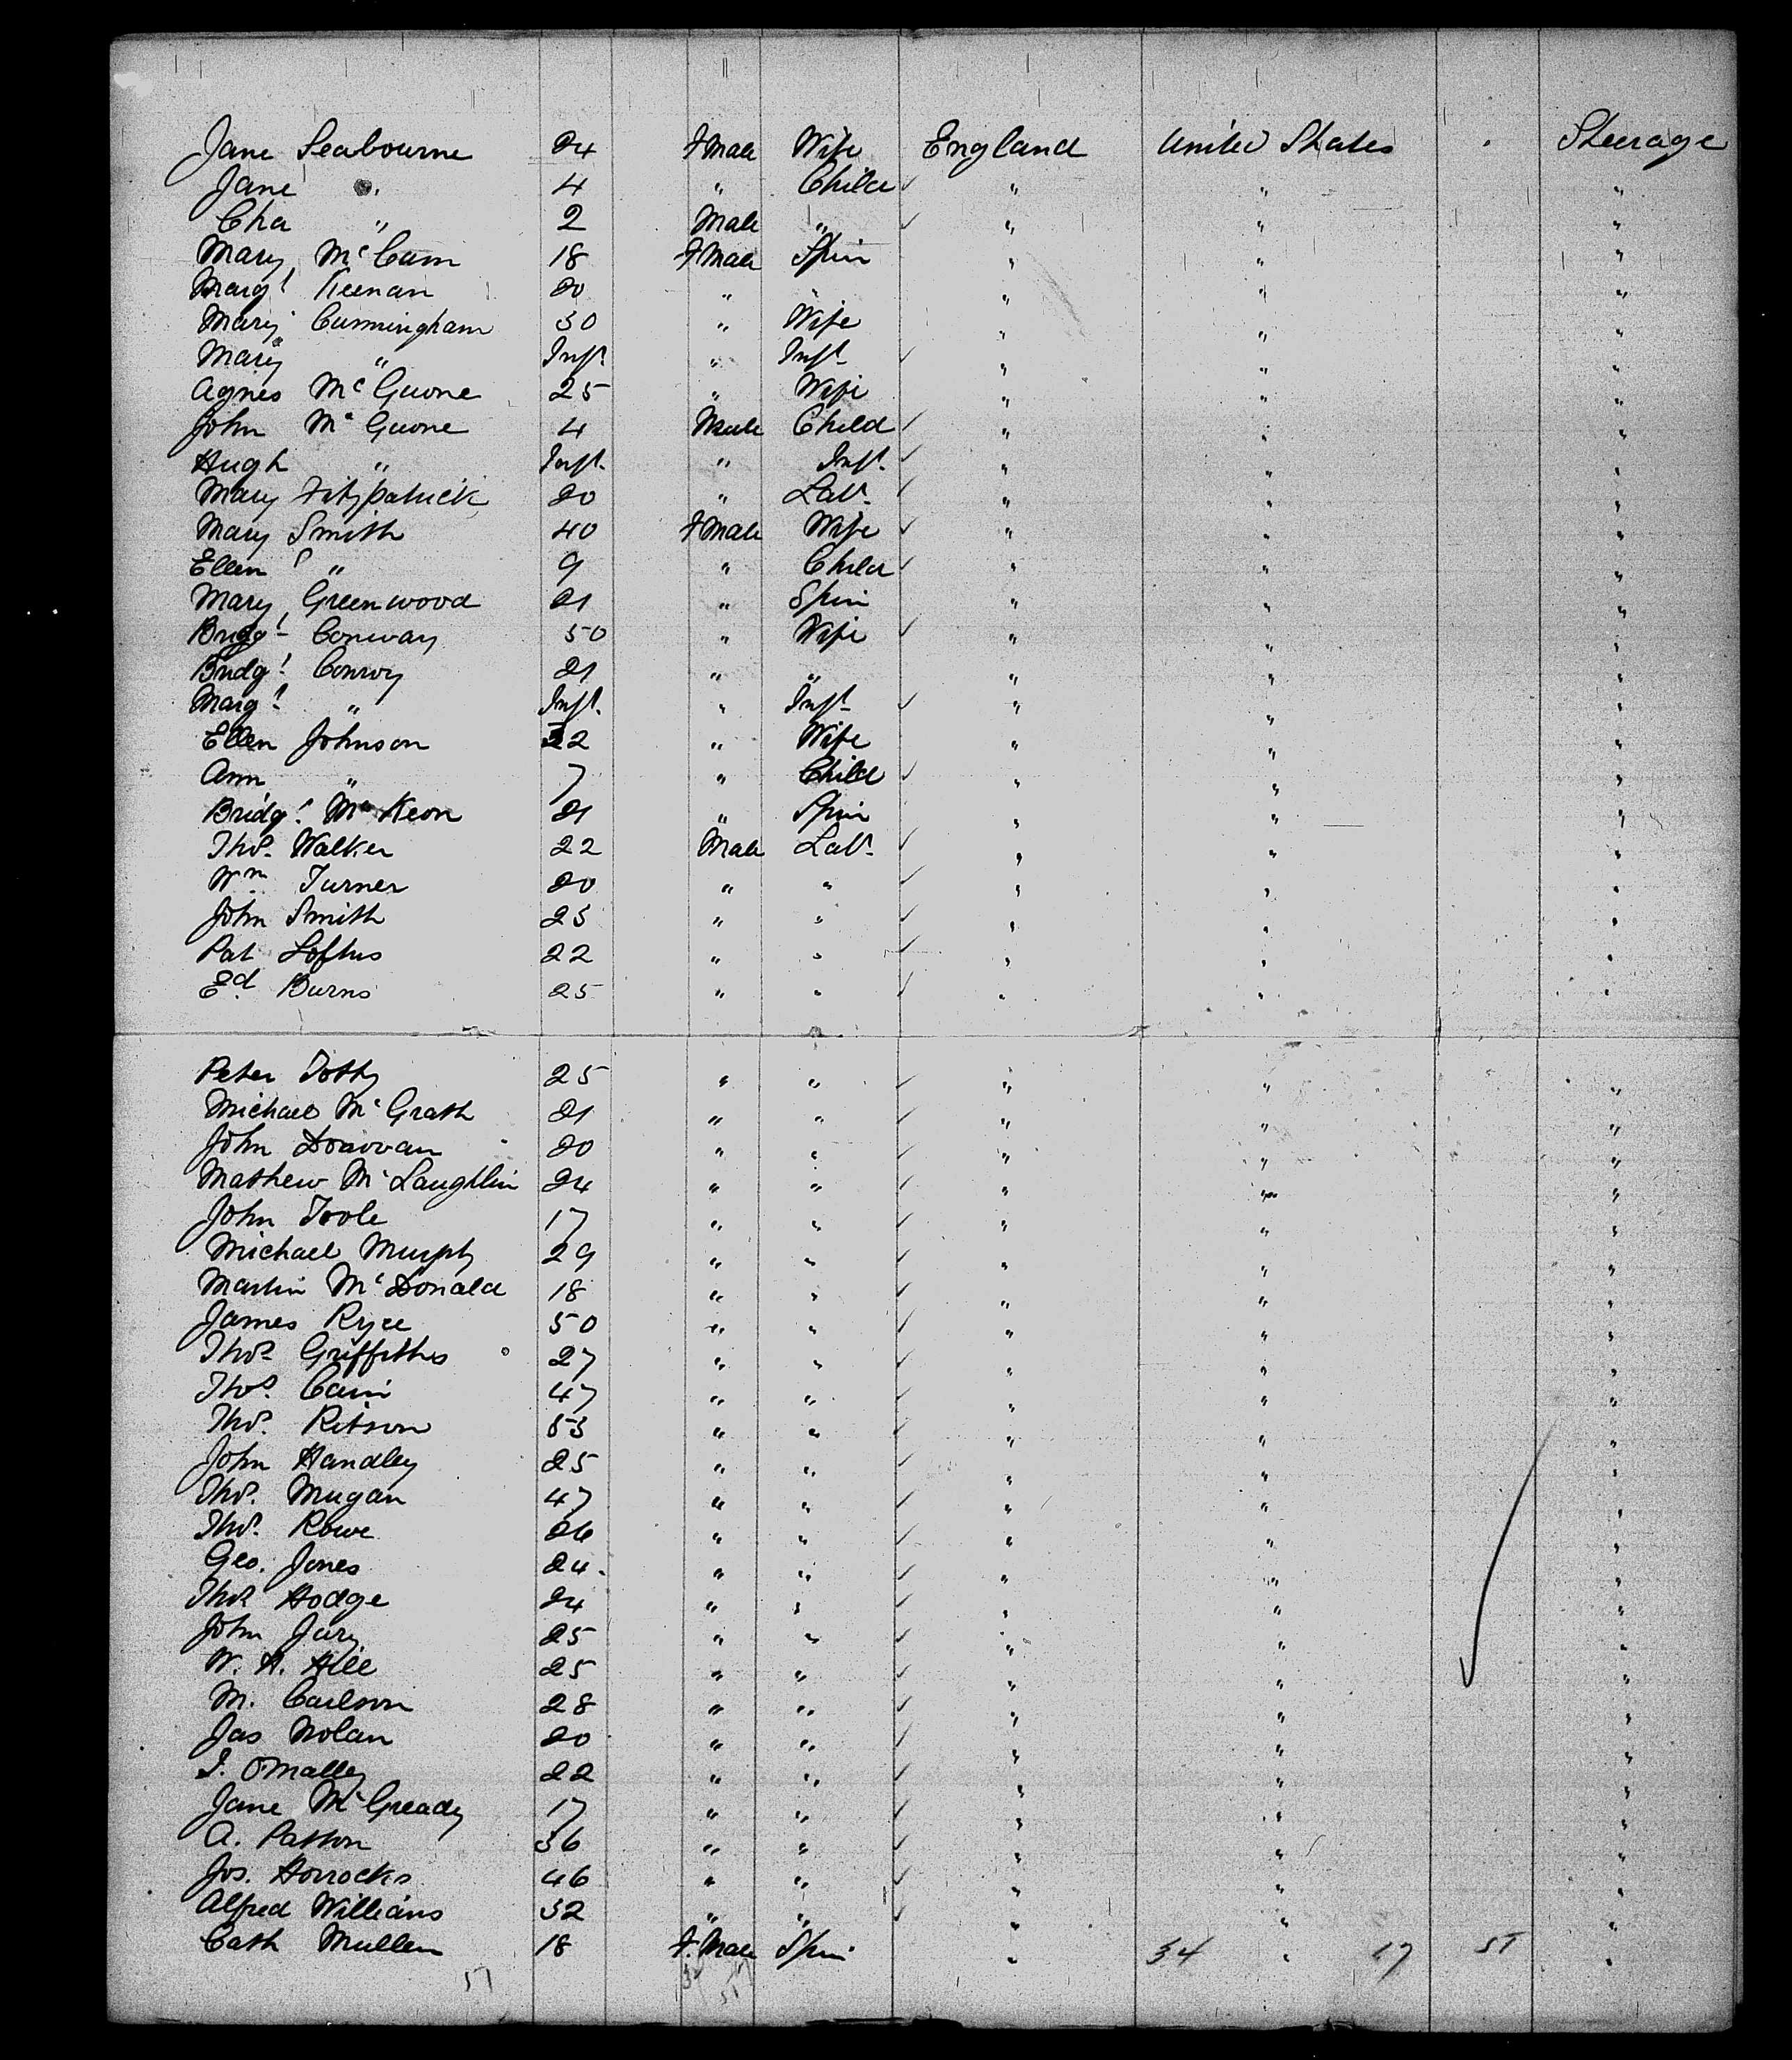 Jane Seabourne 24 F Male Wife England United States Steerage
Jane " 4 " Child ✓ " " "
Cha " 2 Male " ✓ " " "
Mary McCam 18 F Male Spin " " "
Margt Keenan 20 " " " " "
Mary Cunningham 30 " Wife " " "
Mary " Inft. " Inft ✓ " " "
Agnes McGuone 25 " Wife " " "
John McGuone 4 Male Child ✓ " " "
Hugh " Inft. " Inft. ✓ " " "
Mary Fitzpatrick 20 " Labr ✓ " " "
Mary Smith 40 F Male Wife ✓ " " "
Ellen " 9 " Child ✓ " " "
Mary Greenwood 21 " Spin " " "
Bridgt Conway 50 " Wife ✓ " " "
Bridgt Conroy 21 " " " " "
Margt " Inft. " Inft ✓ " " "
Ellen Johnson 32 " Wife " " "
Ann " 7 " Child ✓ " " "
Bridgt McKeon 21 " Spin " " "
Thos. Walker 22 Male Labr ✓ " " "
Wm Turner 20 " " ✓ " " "
John Smith 23 " " ✓ " " "
Pat Loftus 22 " " ✓ " " "
Ed. Burns 25 " " ✓ " " "
Peter Totty 25 " " ✓ " " "
Michael McGrath 21 " " ✓ " " "
John Donovan 20 " " ✓ " " "
Mathew McLaughlin 24 " " ✓ " " "
John Toole 17 " " ✓ " " "
Michael Murphy 29 " " ✓ " " "
Martin McDonald 18 " " ✓ " " "
James Ryce 50 " " ✓ " " "
Thos Griffiths 27 " " ✓ " " "
Thos. Cain 47 " " ✓ " " "
Thos. Ritson 53 " " ✓ " " "
John Handley 25 " " ✓ " " "
Thos. Mugan 47 " " ✓ " " "
Thos. Rowe 26 " " ✓ " " "
Geo. Jones 24 " " ✓ " " "
Thos Hodge 24 " " ✓ " " "
John Jury 25 " " ✓ " " "
W. H. Hill 25 " " ✓ " " "
M. Carlson 28 " " ✓ " " "
Jas Nolan 20 " " ✓ " " "
J. O'Malley 22 " " ✓ " " "
Jane McGready 17 " " ✓ " " "
A. Patton 36 " " ✓ " " "
Jos. Horrocks 46 " " ✓ " " "
Alfred Williams 32 " " ✓ " " "
Cath Mullen 18 F. Male Spin " 34 " 17 51 "
51 34 17
51